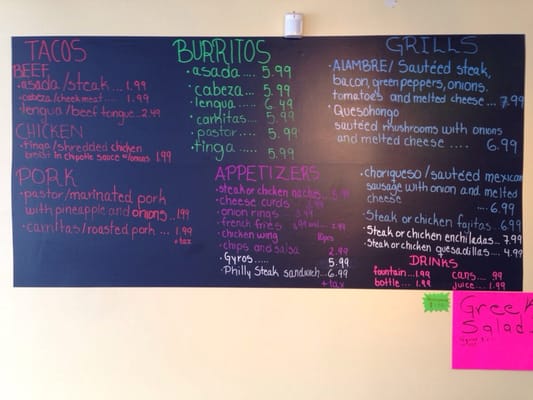 TACOS
BEEF
• asada/steak.... 1.99
• cabeza/cheekmeat.... 1.99
• lengua/beef tongue.. 2.49
CHICKEN
• tinga/shredded chicken
breast in chipotle sauce w/onions 1.99
PORK
• pastor/marinated pork
with pineapple and onions.. 1.99
• carnitas/roasted pork.... 1.99
+tax
BURRITOS
• asada.... 5.99
cabeza... 5.99
• lengua... 6.49
• carnitas... 5.99
• pastor.... 5.99
• tinga.... 5.99
APPETIZERS
• steak or chicken nachos... 5.99
• cheese curds
• onion rings
• french fries
• chicken wing 10pcs
• chips and salsa 2.99
• Gyros..... 5.99
• Philly Steak sandwich... 6.99
+tax
GRILLS
• ALAMBRE/ Sautéed steak,
bacon, green peppers, onions.
tomatoes and melted cheese... 7.99
• Quesohongo
sautéed mushrooms with onions
and melted cheese ..... 6.99
• choriqueso/sautéed mexican
sausage with onion and melted
cheese
..... 6.99
• Steak or chicken fajitas.. 6.99
• Steak or chicken enchiladas.. 7.99
• Steak or chicken quesadillas.... 4.99
DRINKS
fountain... 1.99 cans.. .99
bottle.... 1.99 juice... 1.99
Greek
Salad